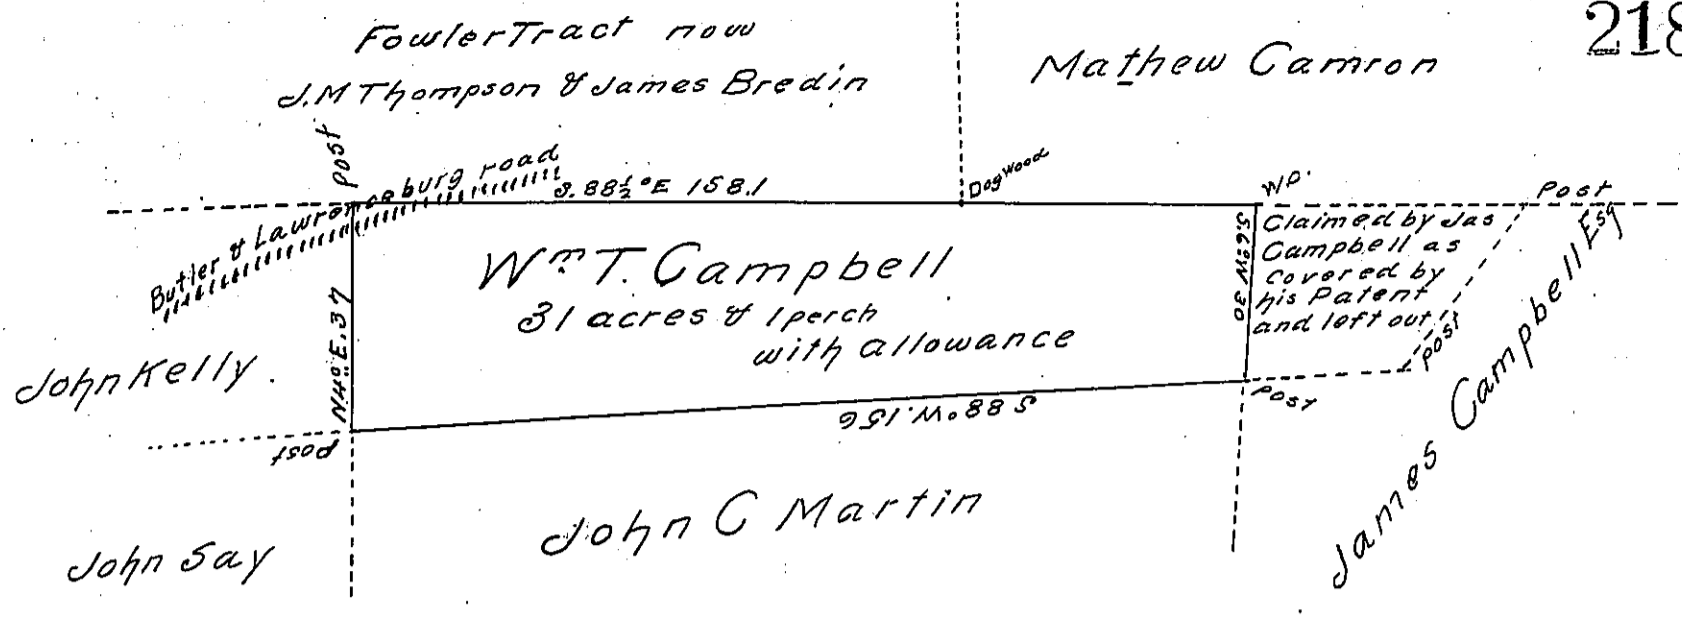 218
Fowler Tract now
J.M Thompson & James Bredin
Mathew Camron
post
Butler & Lawrenceburg road
S. 88½°E 158.1
Dogwood
W.O.
Post
Wᵐ T. Campbell
31 acres & 1 perch
with allowance
S.6°W 30
Claimed by Jas
Campbell as
covered by
his Patent
and left out
post
James Campbell Esq
John Kelly.
S 88°W. 156
Post
post
John C Martin
John Say